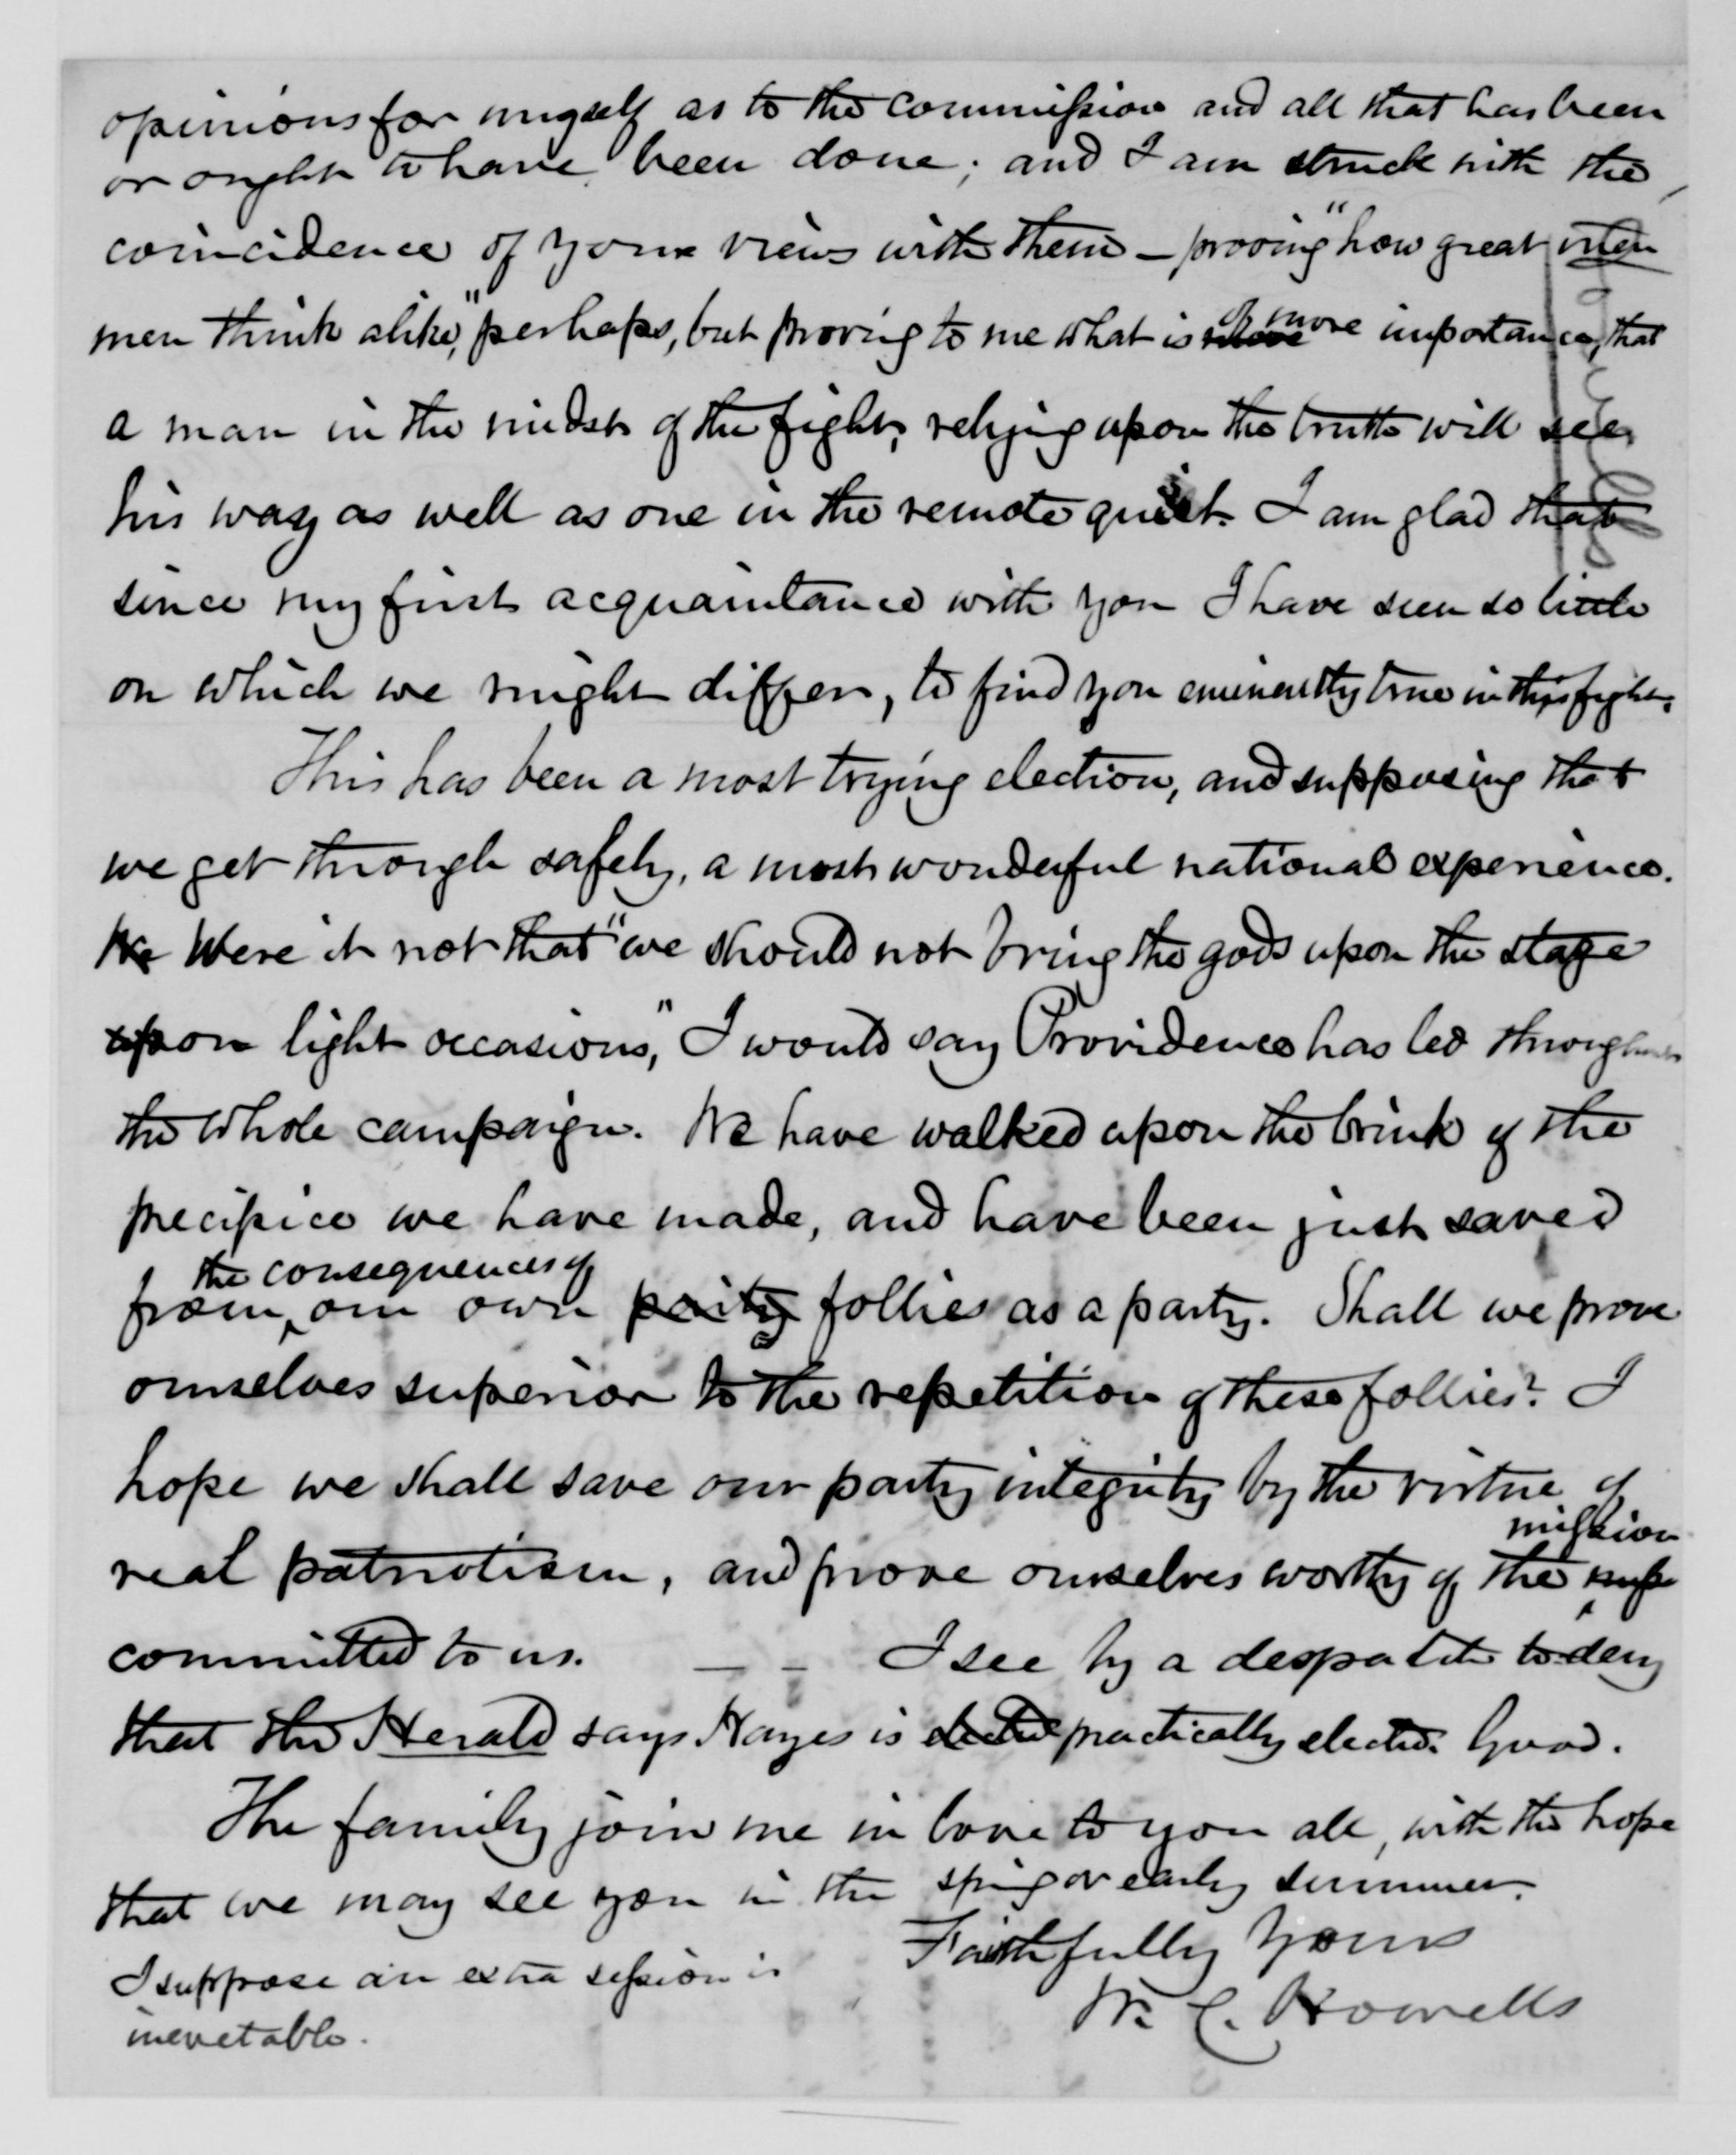 opinions for myself as to the commission and all that has been
or ought to have been done; and I am struck with the
coincidence of your views with them – proving "how great men
men think alike," perhaps, but proving to me what is of more importance, that
a man in the midst of the fight, relying upon the truth will see
his way as well as one in the remote quiet. I am glad that
since my first acquaintance with you I have seen so little
on which we might differ, to find you eminently true in this fight.
This has been a most trying election, and supposing that
we get through safely, a most wonderful national experience.
We Were it not that "we should not bring the gods upon the stage
upon light occasions," I would say Providence has led throughout
the whole campaign. We have walked upon the brink of the
precipice we have made, and have been just saved
the consequences of
from our own party follies as a party. Shall we prove
ourselves superior to the repetition of these follies? I
hope we shall save our party integrity by the virtue of
mission
real patriotism, and prove ourselves worthy of the
committed to us. — – I see by a despatch to-day
that the Herald says Hayes is elected practically elected. Good.
The family join me in love to you all, with the hope
that we may see you in the spring or early summer.
Faithfully Yours
W. C. Howells
I suppose an extra session is
inevetable.